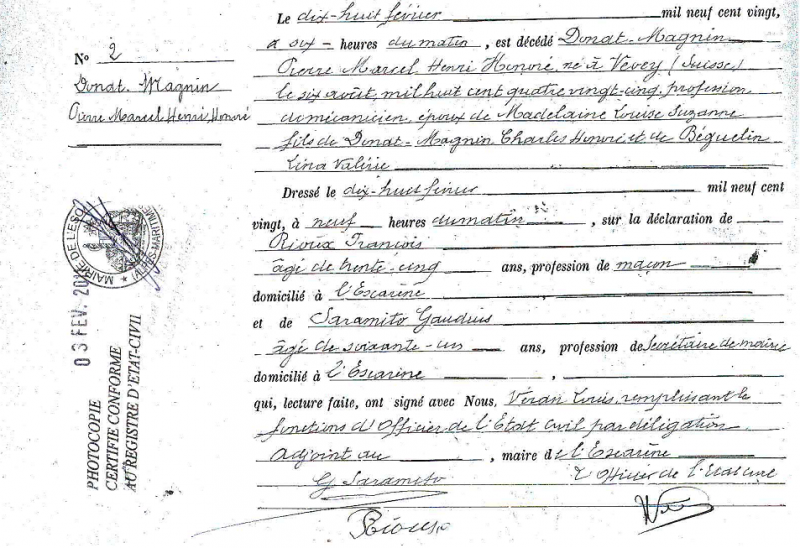 N° 2
Donat-Magnin
Pierre Marcel Henri Honoré
MAIRIE DE L'ESC
PES-MARITIMES
03 FEV. 20
PHOTOCOPIE
CERTIFIE CONFORME
AU REGISTRE D'ETAT-CIVIL
Le dix-huit février mil neuf cent vingt,
à six heures du matin, est décédé Donat-Magnin
Pierre Marcel Henri Honoré né à Vevey (Suisse)
le six août, mil huit cent quatre vingt-cinq, profession
de mécanicien, époux de Madelaine Louise Suzanne
fils de Donat-Magnin Charles Honoré et de Béguelin
Lina Valérie
Dressé le dix-huit février mil neuf cent
vingt, à neuf heures du matin, sur la déclaration de
Rioux François
âgé de trente-cinq ans, profession de maçon
domicilié à l'Escarène
et de Saramito Gaudens
âgé de soixante-un ans, profession de Secrétaire de mairie
domicilié à l'Escarène,
qui, lecture faite, ont signé avec Nous, Véran Louis, remplissant le
fonctions d'Officier de l'Etat civil par déligation
Adjoint au, maire de l'Escarène
G Saramito L'Officier de l'Etat civil
Rioux